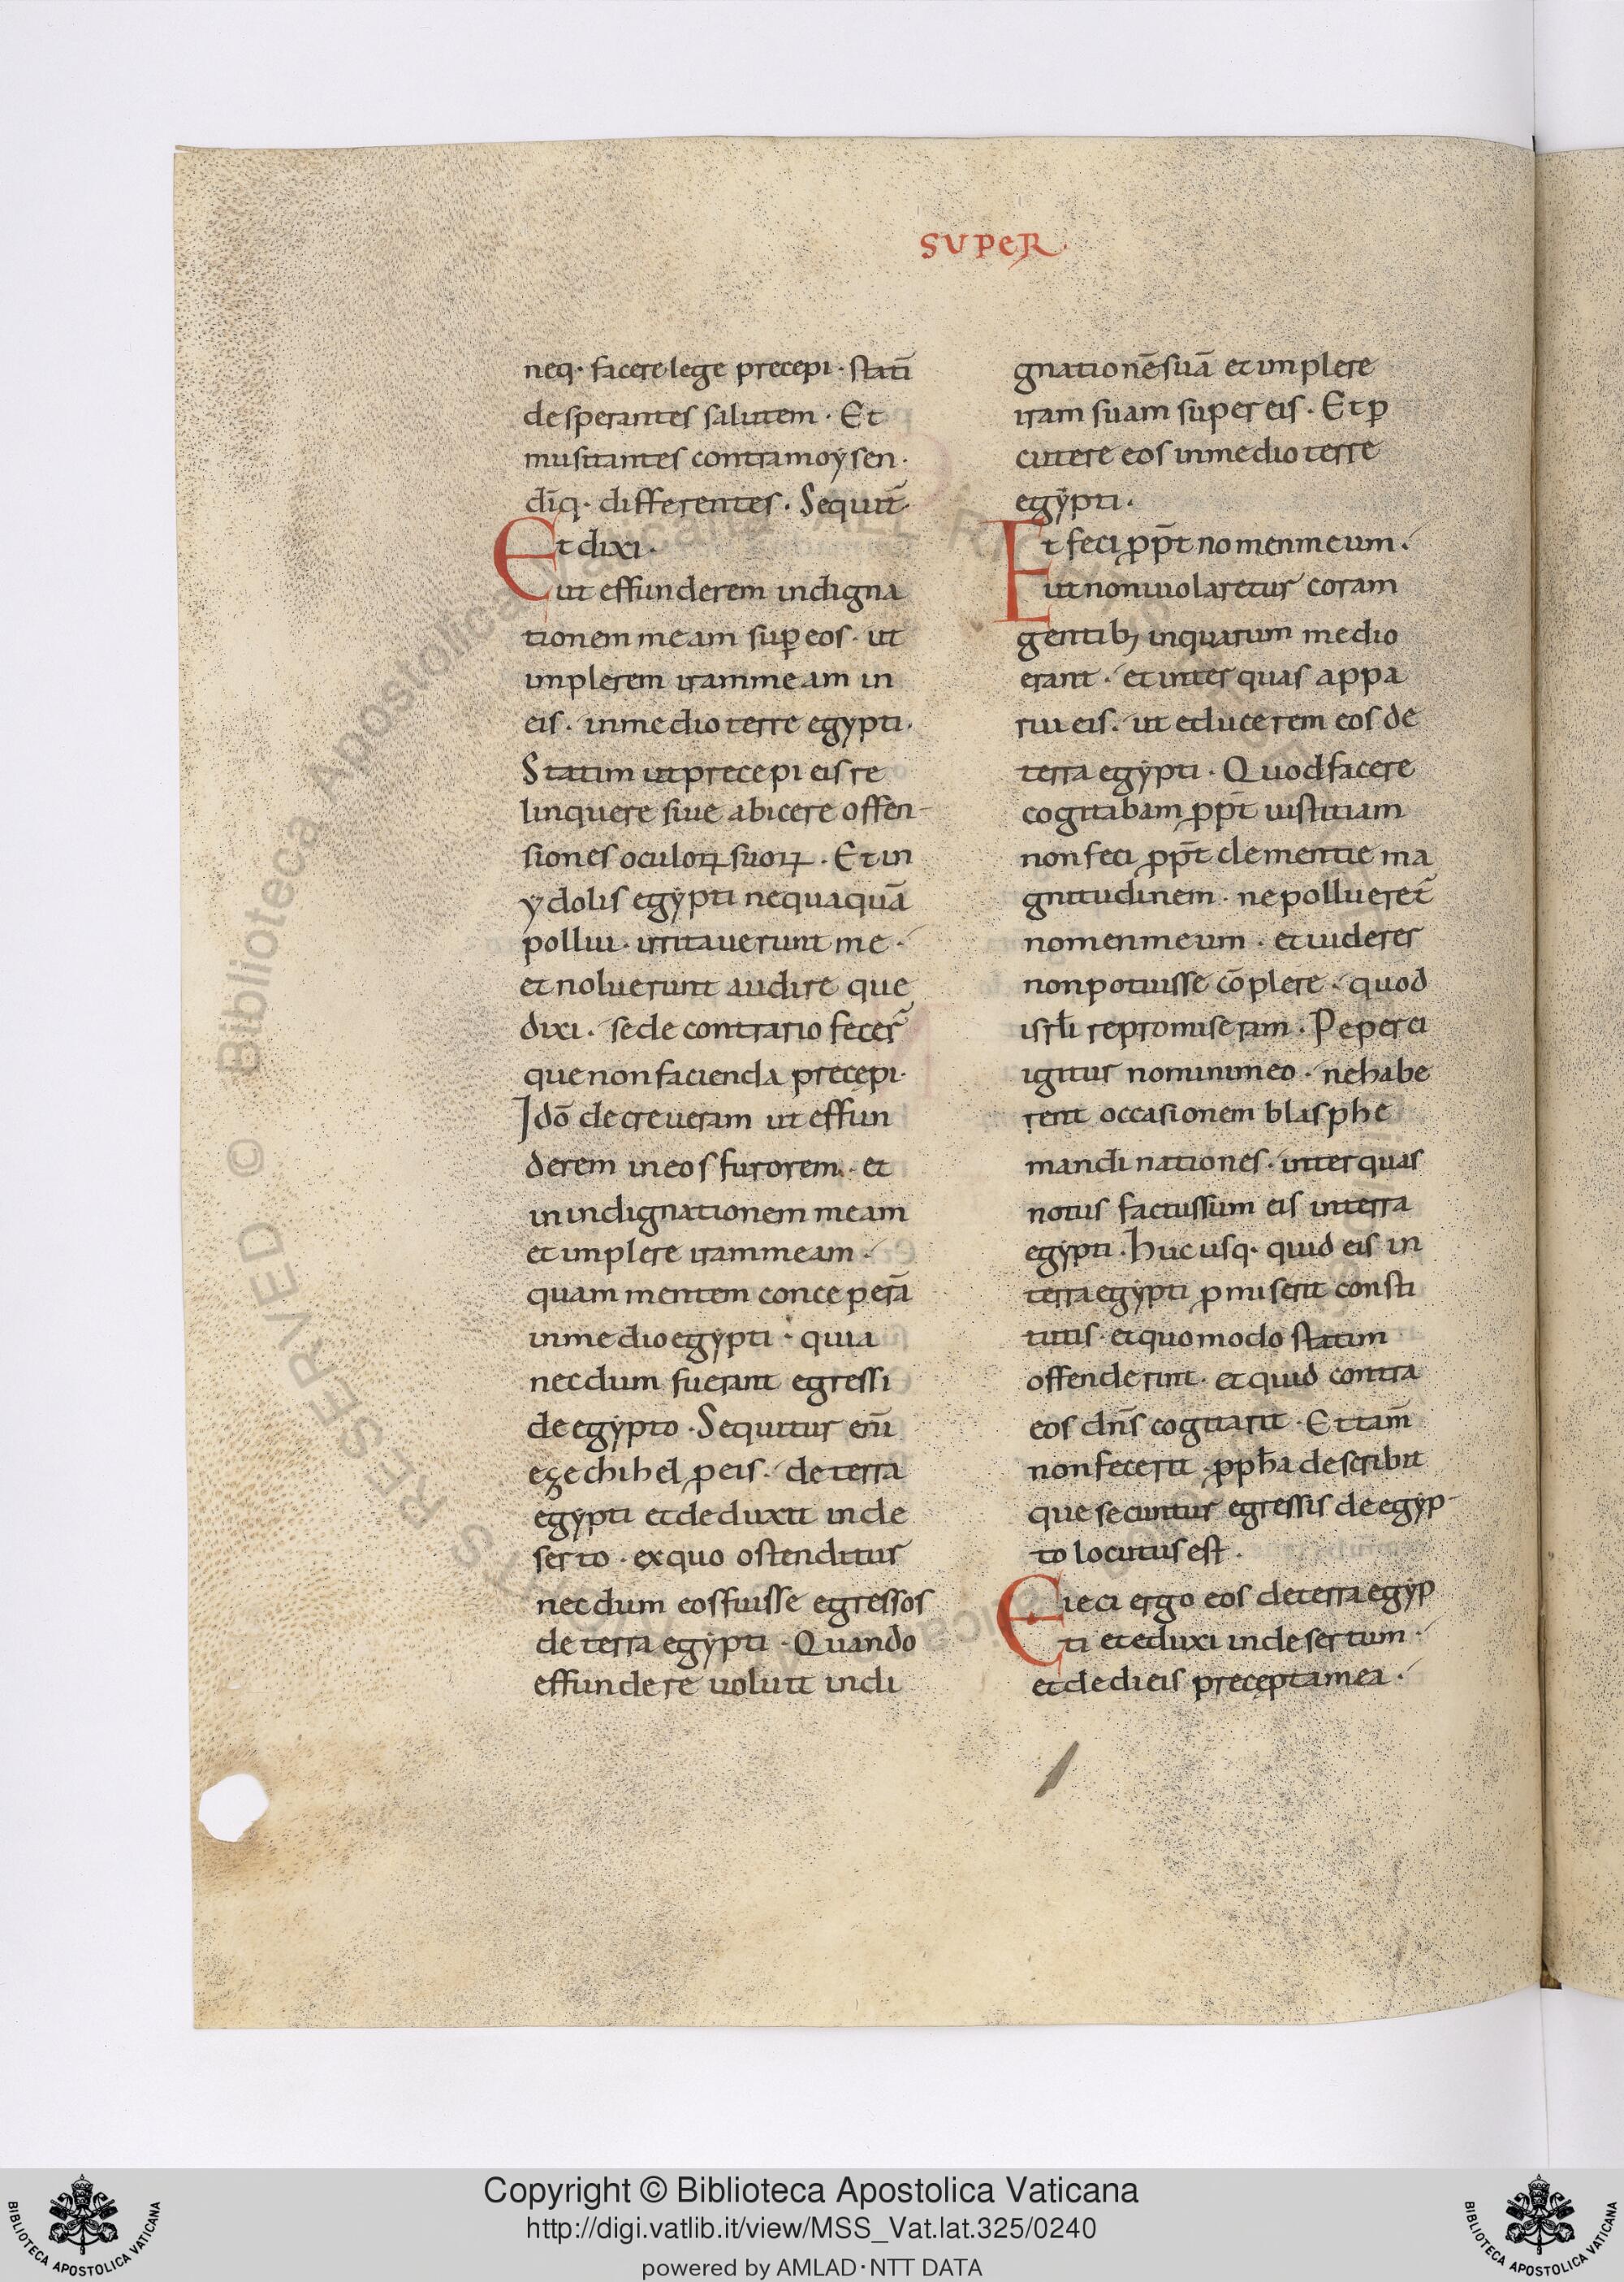 SUPER.
neq· facere lege precepi · statī
desperantes salutem · Et
musitantes contra moysen ·
dīq· differentes . Sequit̄
Et dixi ·
ut effunderem indigna
tionem meam suꝑ eos · ut
implerem iram meam in
eis . in medio terre egypti .
Statim ut precepi eis re
linquere siue abicere offen-
siones oculoꝝ suoꝝ . Et in
ydolis egypti nequaquā
pollui · irritauerunt me ·
et noluerunt audire que
dixi . sed e contrario fecer̄
que non facienda precepi ·
Idō decreueram ut effun
derem in eos furorem . et
in indignationem meam
et implere iram meam ·
quam mentem conceperā
in medio egypti · quia
necdum fuerant egressi
de egypto · Sequitur enī
ezechihel ꝑ eis . de terra
egypti et deduxit in de
serto · ex quo ostenditur
necdum eos fuisse egressos
de terra egypti · Quando
effundere uoluit indi
gnationē suā et implere
iram suam super eis · Et ꝑ
cutere eos in medio terre
egypti ·
Et feci ꝓp̄t nomen meum .
ut non uiolaretur coram
gentibꝫ in quarum medio
erant . et inter quas appa
rui eis . ut educerem eos de
terra egypti · Quod facere
cogitabam ꝓp̄t iustitiam
non feci ꝓp̄t clementie ma
gnitudinem · ne pollueret̄
nomen meum · et uiderer
non potuisse cōplere . quod
isrl̄i repromiseram . Peperci
igitur nomini meo · ne habe
rent occasionem blasphe
mandi nationes . inter quas
notus factus sum eis in terra
egypti . Huc usq· quid eis in
terra egypti ꝓmiserit consti
tutis · et quomodo statim
offenderint · et quid contra
eos dn̄s cogitarit · Et tam̄
non fecerit ꝓph̄a describit
que secuntur egressis de egyp-
to locutus est .
Eieci ergo eos de terra egyp
ti et eduxi in desertum ·
et dedi eis precepta mea .
Copyright © Biblioteca Apostolica Vaticana
http://digi.vatlib.it/view/MSS_Vat.lat.325/0240
powered by AMLAD·NTT DATA